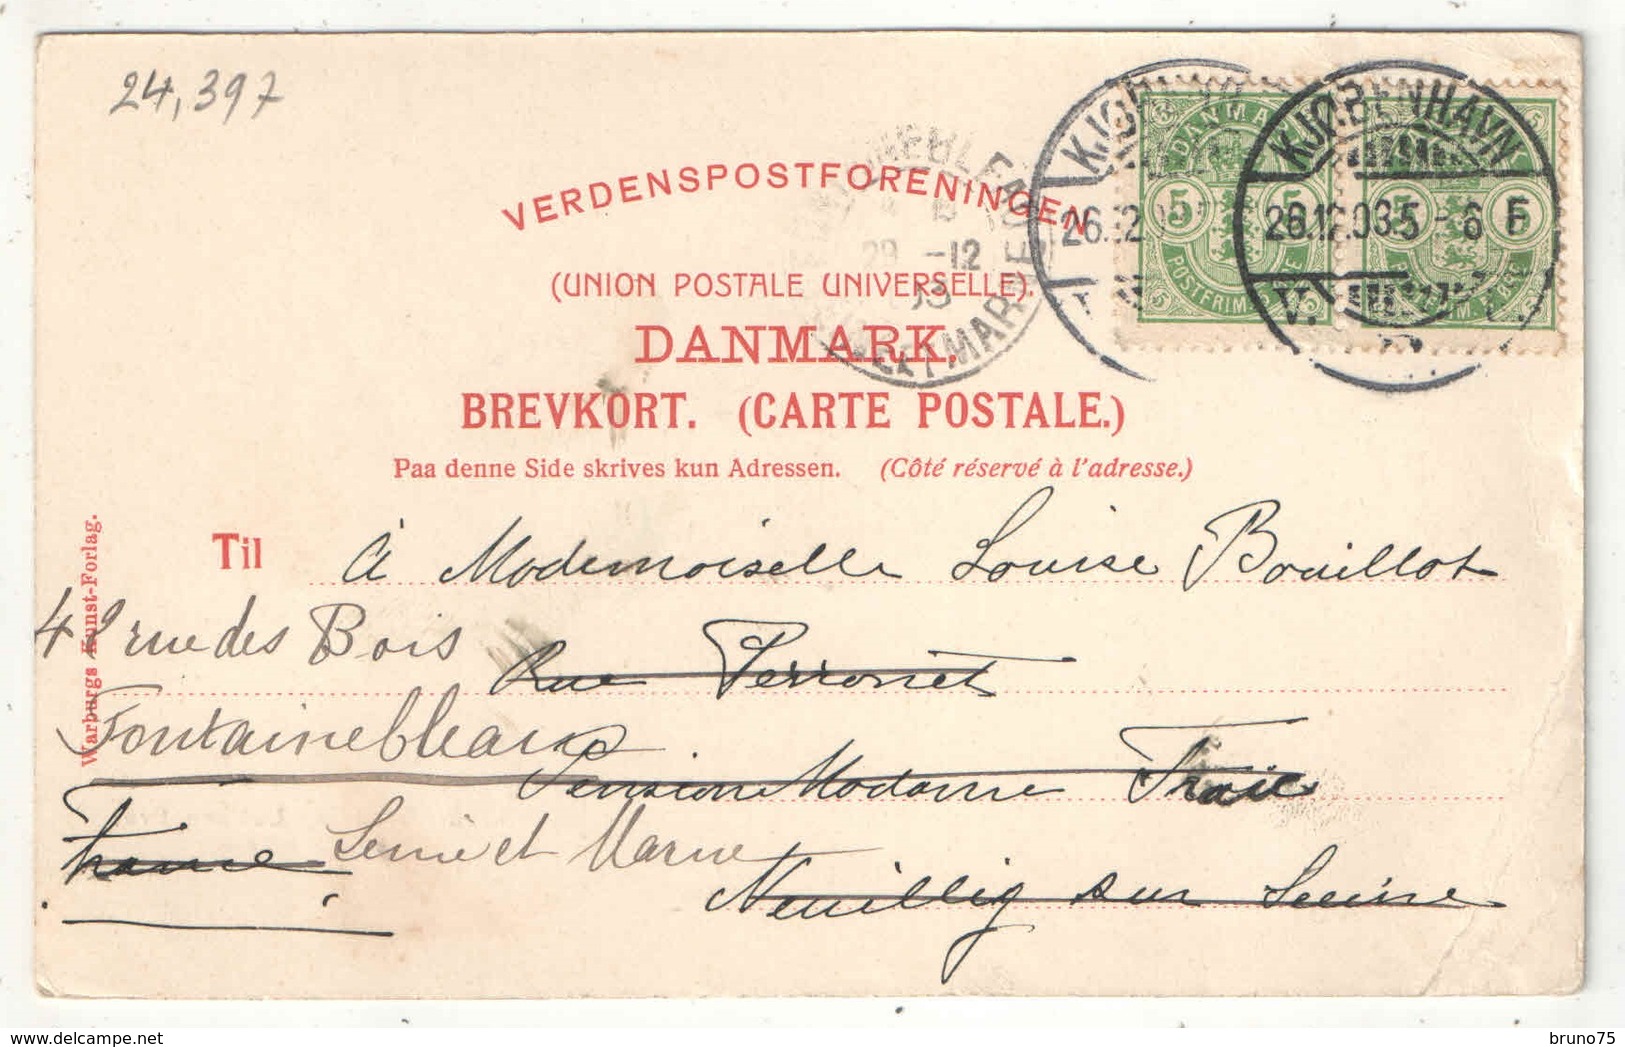 24,397
VERDENSPOSTFORENINGEN
(UNION POSTALE UNIVERSELLE).
DANMARK.
BREVKORT. (CARTE POSTALE.)
Paa denne Side skrives kun Adressen. (Côté réservé à l'adresse.)
KJØBENHAVN
26.12.03 5-6 E
DANMARK
5 5
POSTFRIM.
29 -12
03
SEINE-ET-MARNE
Warburgs Kunst-Forlag.
Til
à Mademoiselle Louise Bouillot
4 rue des Bois
Rue Perronet
Fontainebleau
Pension Madame
France
Seine et Marne
Neuillig sur Seine
bruno75